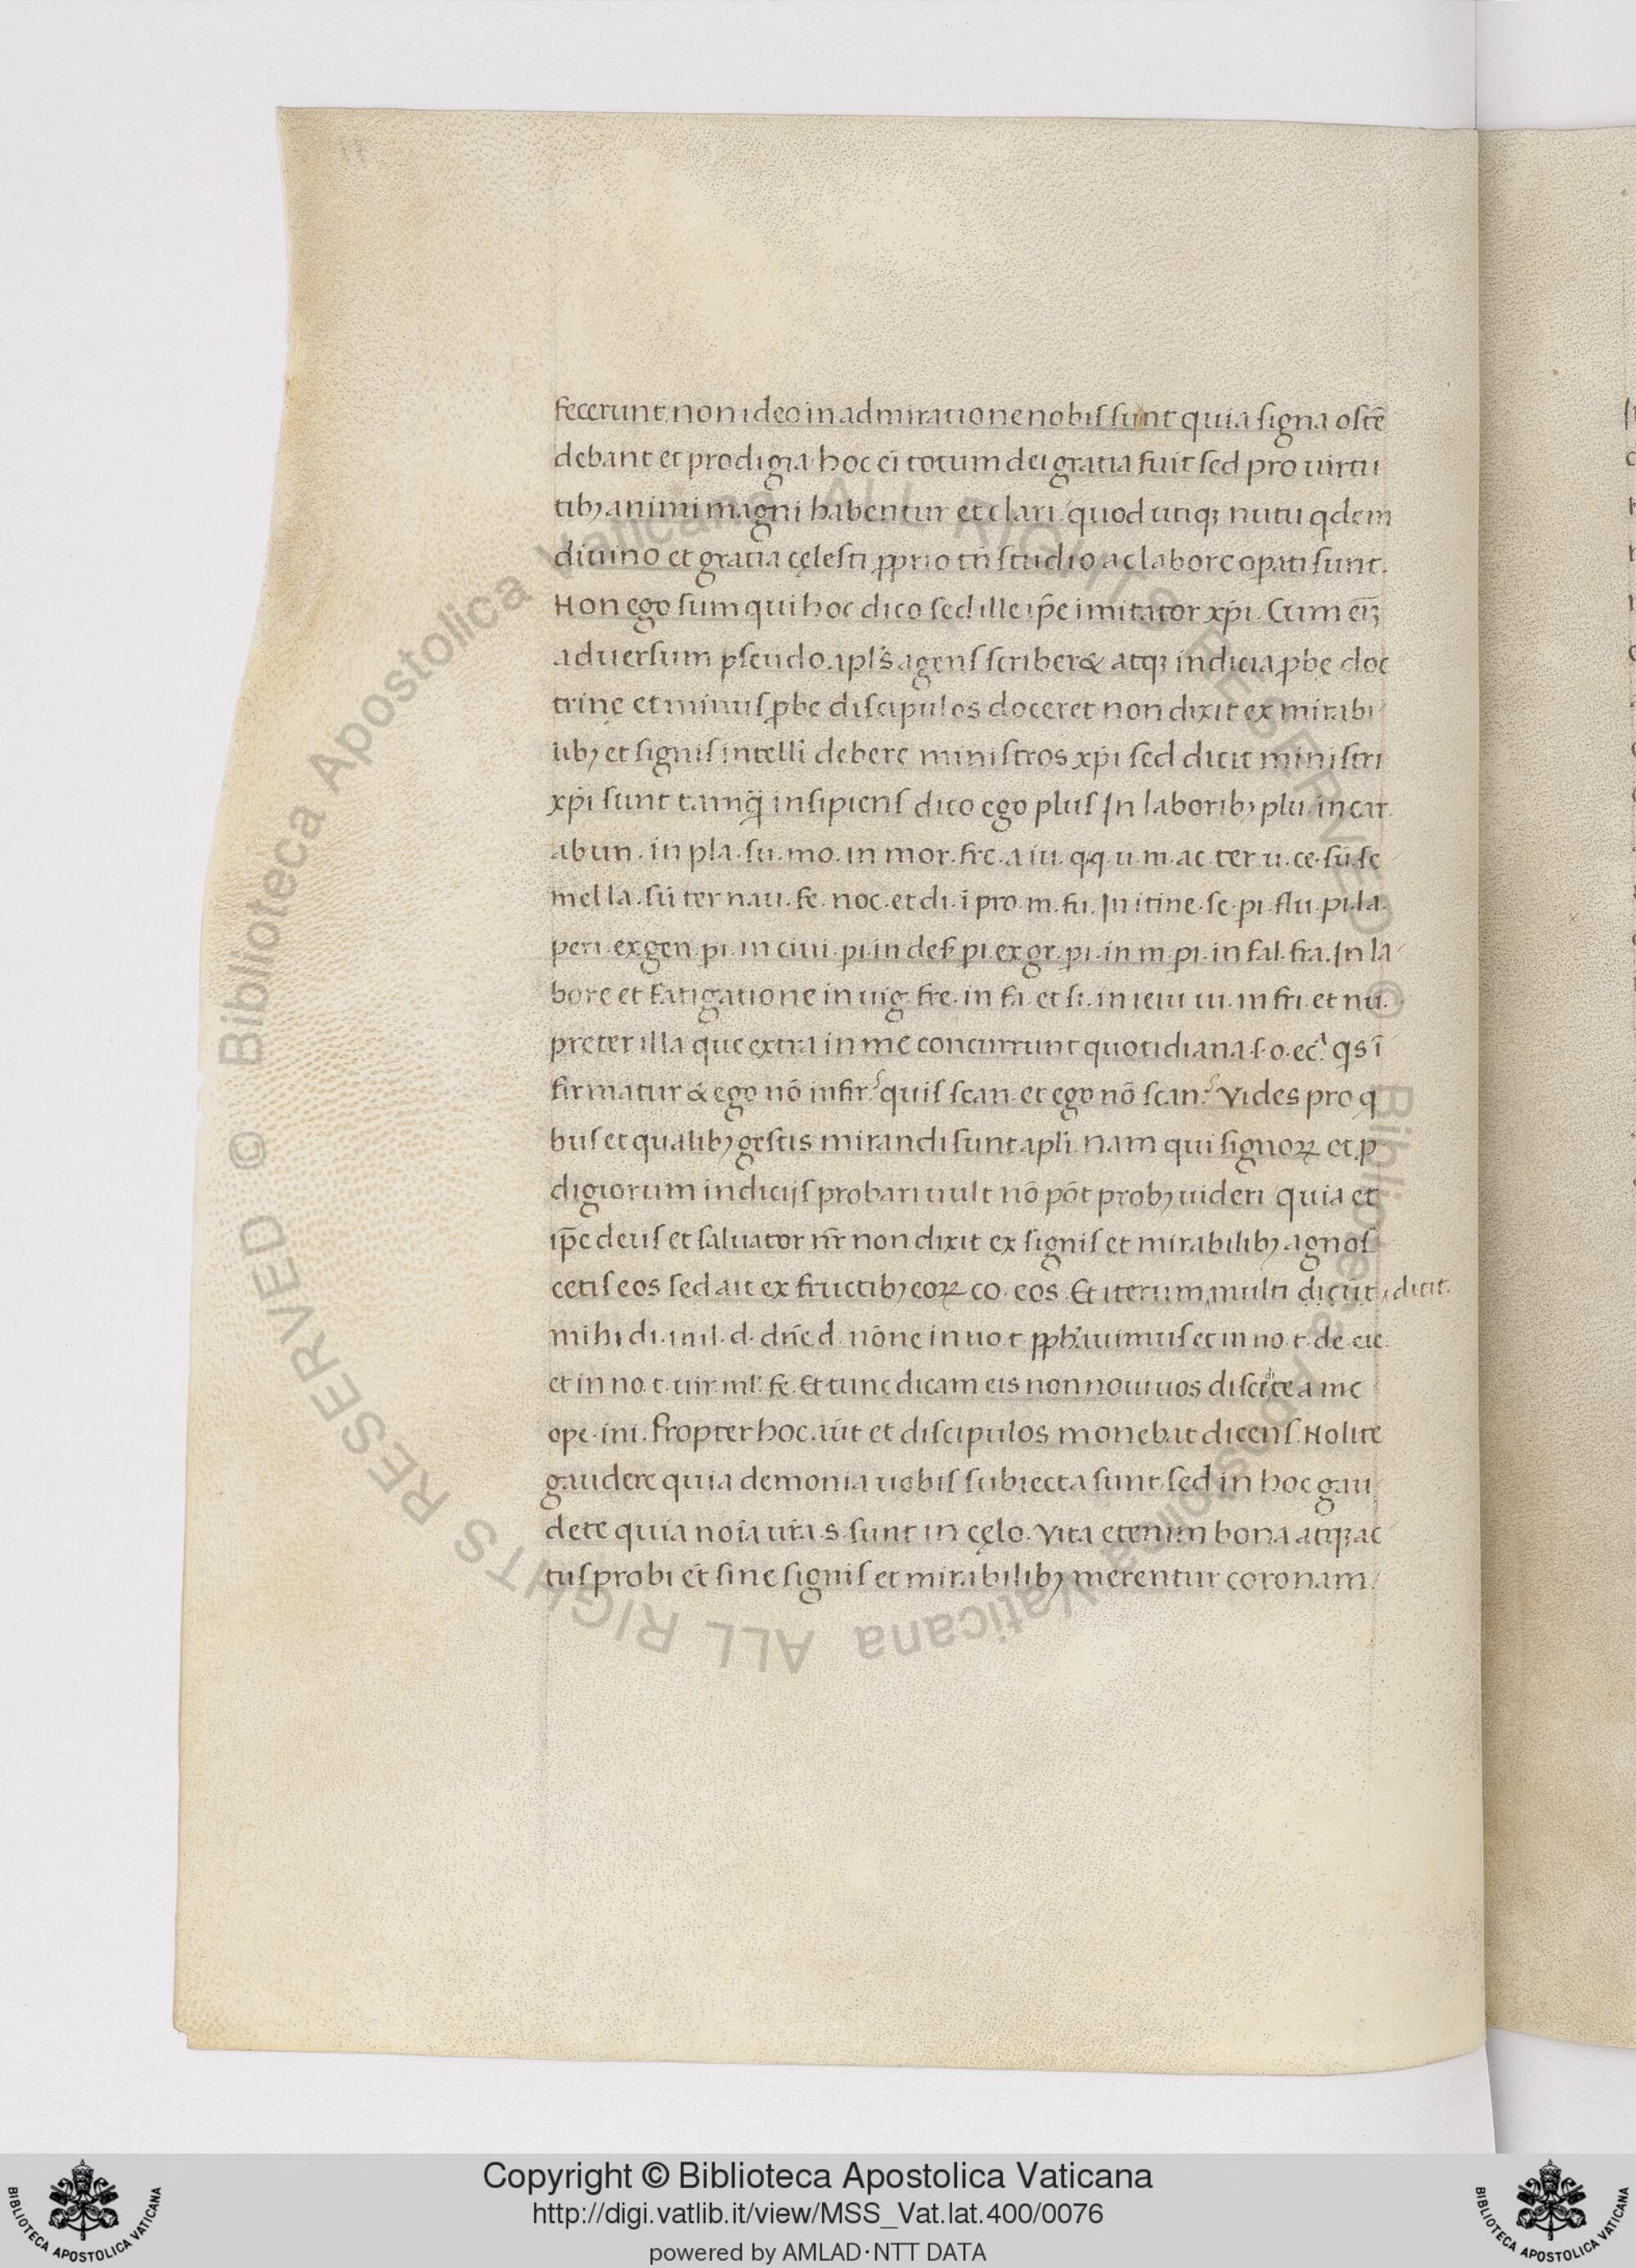 fecerunt. non ideo in admiratione nobis sunt quia signa ostē
debant et prodigia. hoc eī totum dei gratia fuit sed pro uirtu
tibꝫ animi magni habentur et clari. quod utiqꝫ nutu qdem
diuino et gratia cęlesti ꝓprio tn̄ studio ac labore opati sunt.
Non ego sum qui hoc dico sed ille ip̄e imitator xp̄i. Cum eī
aduersum pseudo apl̄s agens scriberet atqꝫ indicia ꝓbe doc
trinę et minus ꝓbe discipulos doceret non dixit ex mirabi
libꝫ et signis intelli debere ministros xp̄i sed dicit ministri
xp̄i sunt tamq̄ insipiens dico ego plus In laboribꝫ plu. in car.
abun. in pla. su. mo. in mor. fre. a iu. qq. u. m. ac ter u. ce. sū se
mel la. sū ter nau. fe. noc. et di. ī pro. m. fu. In itine. se. pi. flu. pi. la.
peri. ex gen. pi. in ciui. pi. in des. pi. ex gr. pi. in m. pi. in fal. fra. In la
bore et fatigatione in uig. fre. in fa. et si. in ieiu iu. in fri. et nu.
preter illa que extra in me concurrunt quotidiana s. o. ec̄. qs ī
firmatur & ego nō infir.? quis scan. et ego nō scan.? Vides pro q
bus et qualibꝫ gestis mirandi sunt apl̄i. nam qui signoꝝ et ꝓ
digiorum indicijs probari uult nō pōt probꝫ uideri quia et
ip̄e deus et saluator nr̄ non dixit ex signis et mirabilibꝫ agnos
cetis eos sed ait ex fructibꝫ eoꝝ co. eos. Et iterum multi dicūt dicit.
mihi di. in il. d. dn̄e d. nōne in uo. t. ꝓph.uimus et in no. t. de. eie.
et in no. t. uir. ml. fe. Et tunc dicam eis non noui uos discedite a me
ope. ini. Propter hoc aūt et discipulos monebat dicens. Nolite
gaudere quia demonia uobis subiecta sunt sed in hoc gau
dete quia noīa ur̄a s. sunt in cęlo. Vita etenim bona atqꝫ ac
tus probi et sine signis et mirabilibꝫ merentur coronam.
© Biblioteca Apostolica Vaticana ALL RIGHTS RESERVED © Biblioteca Apostolica Vaticana ALL RIGHTS RESERVED
BIBLIOTECA APOSTOLICA VATICANA
Copyright © Biblioteca Apostolica Vaticana
http://digi.vatlib.it/view/MSS_Vat.lat.400/0076
powered by AMLAD·NTT DATA
BIBLIOTECA APOSTOLICA VATICANA